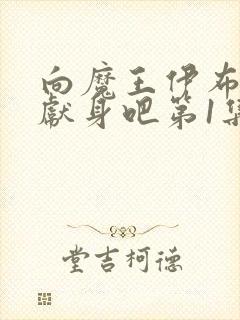 向魔王伊布
獻身吧第1集
堂吉柯德